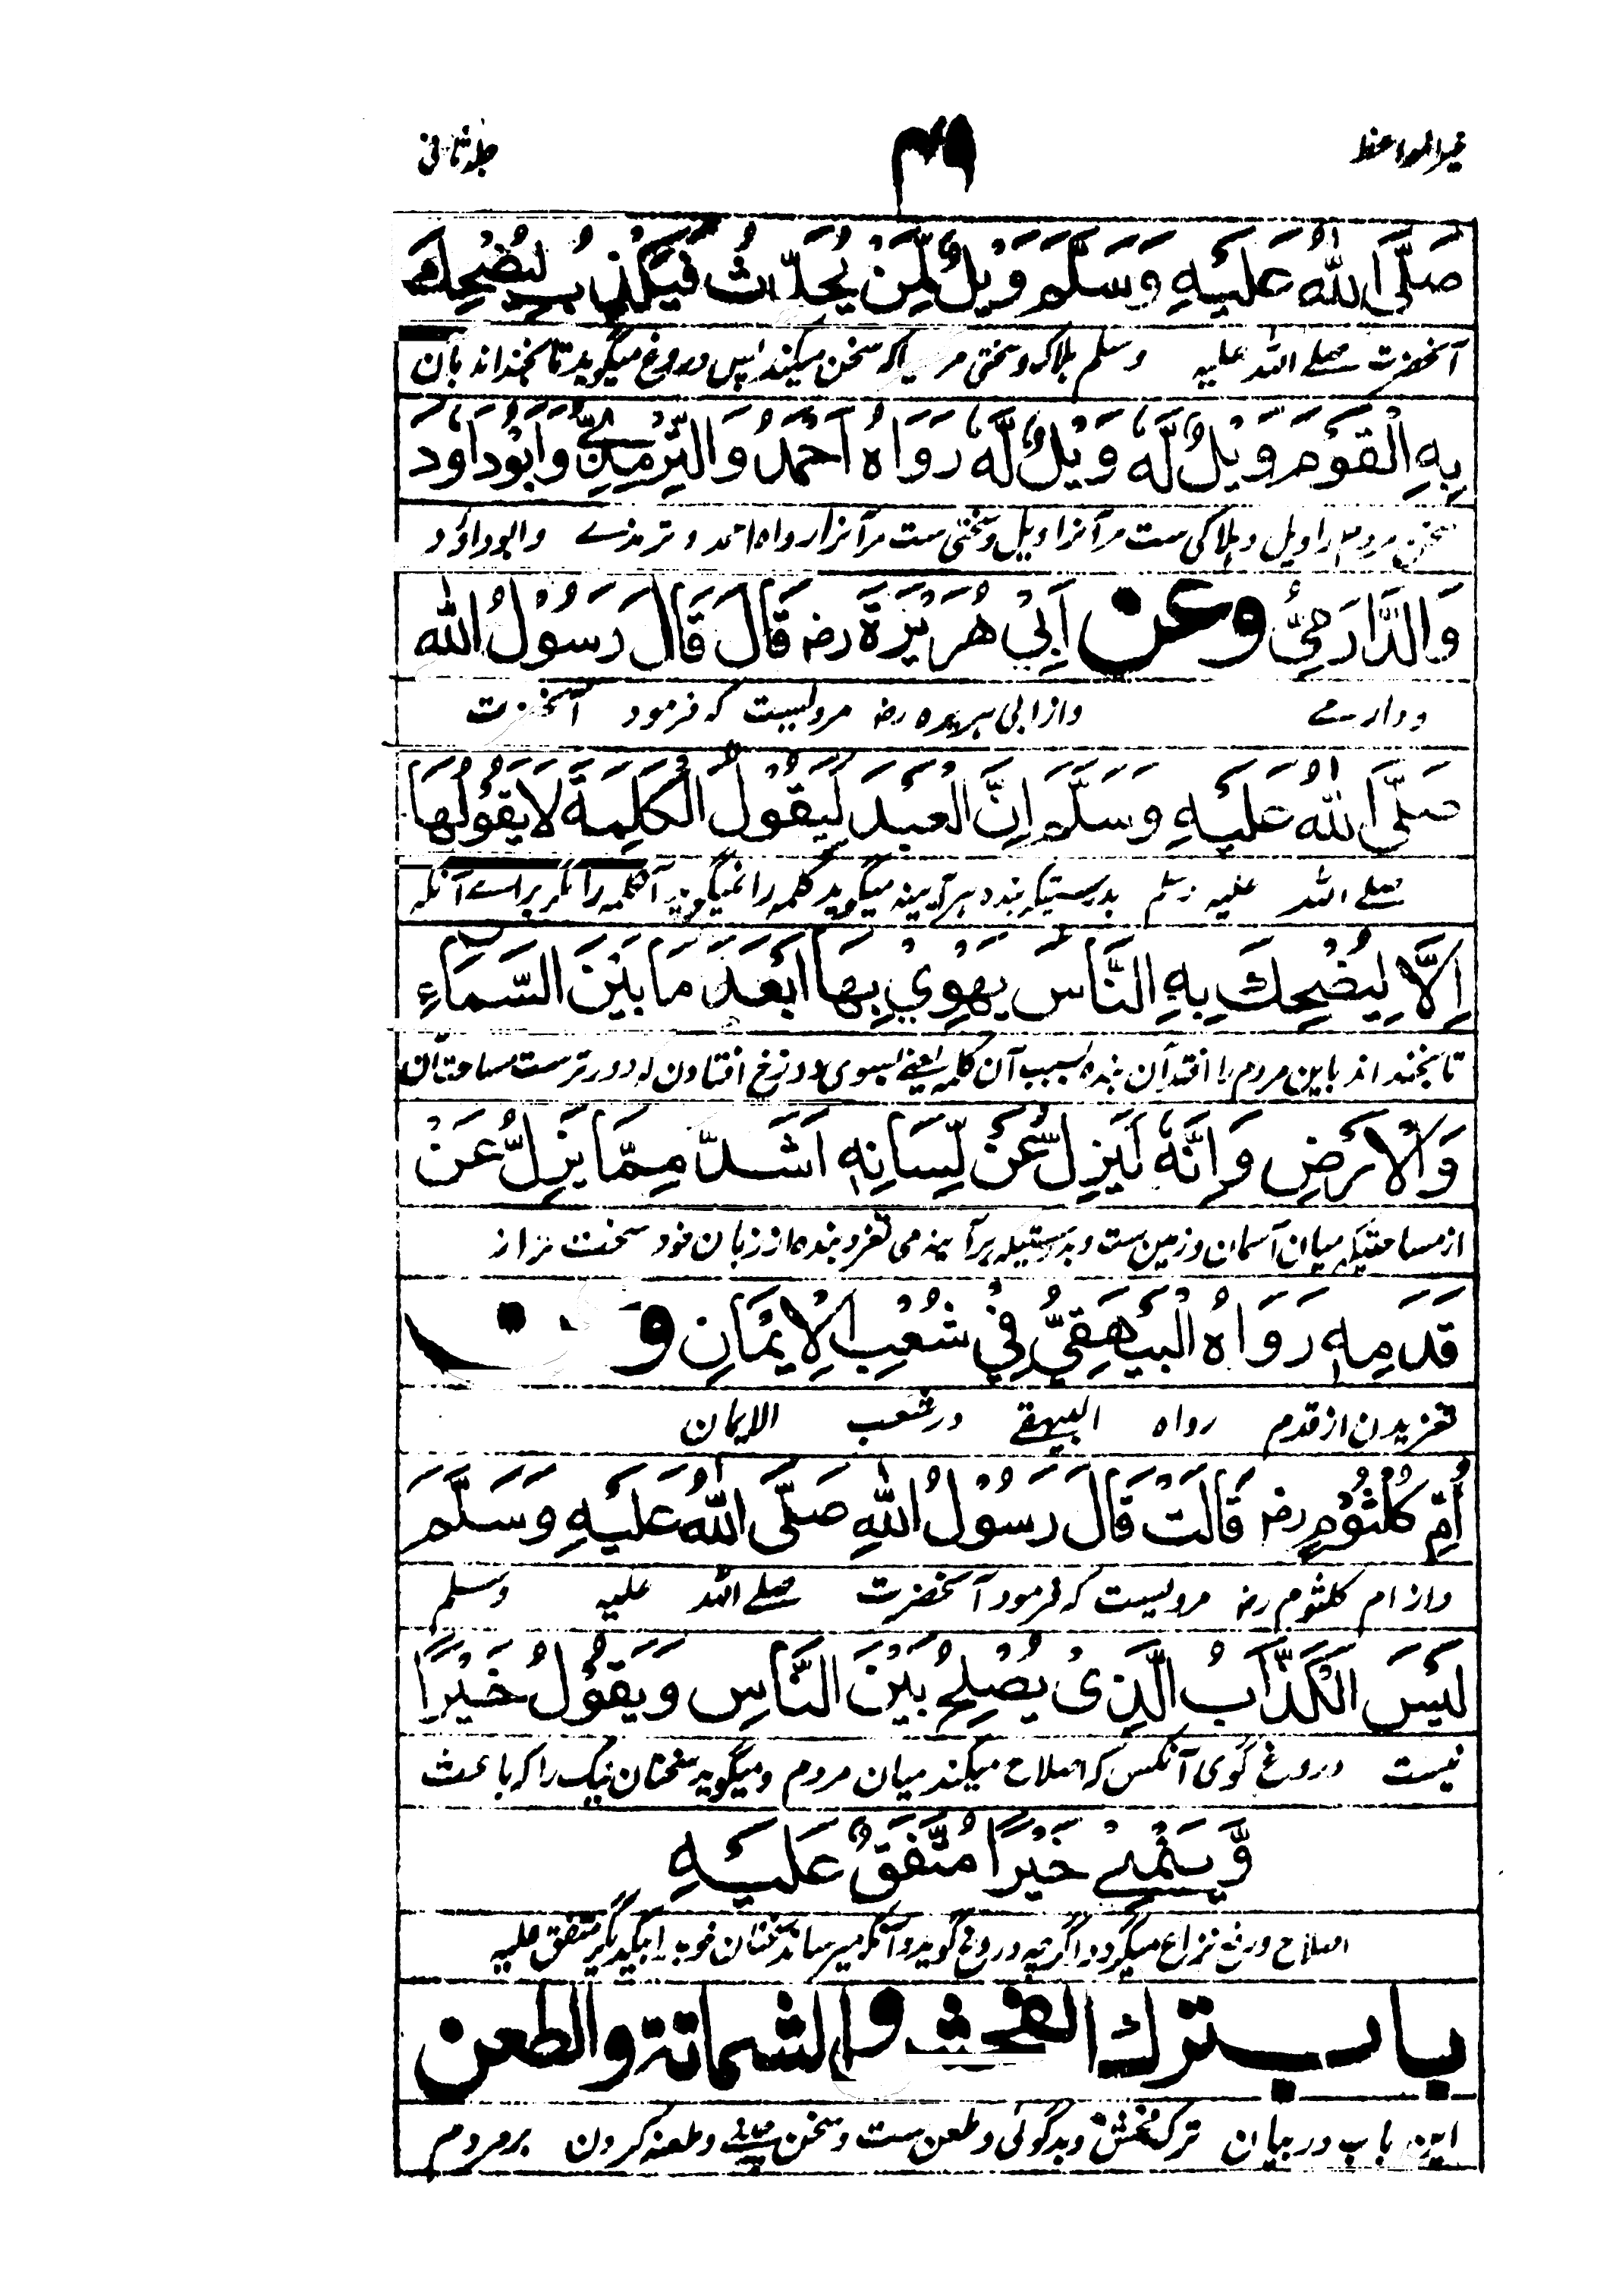 خیر المواعظ ۴۹ جلد ثانی
صَلَّی اللّٰهُ عَلَیْهِ وَسَلَّمَ وَیْلٌ لِّمَنْ یُحَدِّثُ فَیَکْذِبُ لِیُضْحِكَ
آنحضرت صلے اللہ علیہ وسلم ہلاک و سختی مر کہ سخن میکند پس دروغ میگوید تا بخنداند بآن
بِهِ الْقَوْمَ وَیْلٌ لَّهٗ وَیْلٌ لَّهٗ رَوَاهُ اَحْمَدُ وَالتِّرْمِذِیُّ وَاَبُوْدَاوٗدَ
سخن مردم را ویل و ہلاکی ست مر آنرا ویل و سختی ست مر آنرا رواہ احمد و ترمذے و ابو داؤد
وَالدَّارَمِیُّ وعن اَبِیْ هُرَیْرَةَ رضہ قَالَ قَالَ رَسُوْلُ اللّٰه
و دارمے و از ابی ہریرہ رضہ مرویست کہ فرمود آنحضرت
صَلَّی اللّٰهُ عَلَیْهِ وَسَلَّمَ اِنَّ الْعَبْدَ لَیَقُوْلُ الْکَلِمَةَ لَا یَقُوْلُهَا
صلے اللہ علیہ وسلم بدرستیکہ بندہ ہر آیینہ میگوید کلمہ را نمیگوید آنکلمہ را مگر براے آنکہ
اِلَّا لِیُضْحِكَ بِهِ النَّاسَ یَهْوِیْ بِهَا اَبْعَدَ مَا بَیْنَ السَّمَآءِ
تا بخنداند باین مردم را افتد آن بندہ بسبب آن کلمہ یعنے بسوی دوزخ افتادن کہ دور ترست مسافت آن
وَالْاَرْضِ وَاِنَّهٗ لَیَزِلُّ عَنْ لِّسَانِهٖ اَشَدَّ مِمَّا یَزِلُّ عَنْ
از مسافتیکہ میان آسمان و زمین ست و بدرستیکہ ہر آینہ می لغزد بندہ از زبان خود سخت تر از
قَدَمِهٖ رَوَاهُ الْبَیْهَقِیُّ فِیْ شُعَبِ الْاِیْمَانِ و
لغزیدن از قدم رواہ البیہقے در شعب الایمان
اُمِّ کُلْثُوْمٍ رضہ قَالَتْ قَالَ رَسُوْلُ اللّٰهِ صَلَّی اللّٰهُ عَلَیْهِ وَسَلَّمَ
و از ام کلثوم رضہ مرویست کہ فرمود آنحضرت صلے اللہ علیہ وسلم
لَیْسَ الْکَذَّابُ الَّذِیْ یُصْلِحُ بَیْنَ النَّاسِ وَیَقُوْلُ خَیْرًا
نیست دروغ گوی آنکس کہ اصلاح میکند میان مردم و میگوید سخنان نیک را کہ باعث
وَّیَنْمِے خَیْرًا مُتَّفَقٌ عَلَیْهِ
اصلاح و رفع نزاع میگردد اگرچہ دروغ گوید و آنکہ میرساند سخنان خوب را بیکدیگر متفق علیہ
باب ترك الفحش والشماتة والطعن
این باب در بیان ترک فحش و بدگوئی و طعن ست و سخن و طعنہ کردن بر مردم